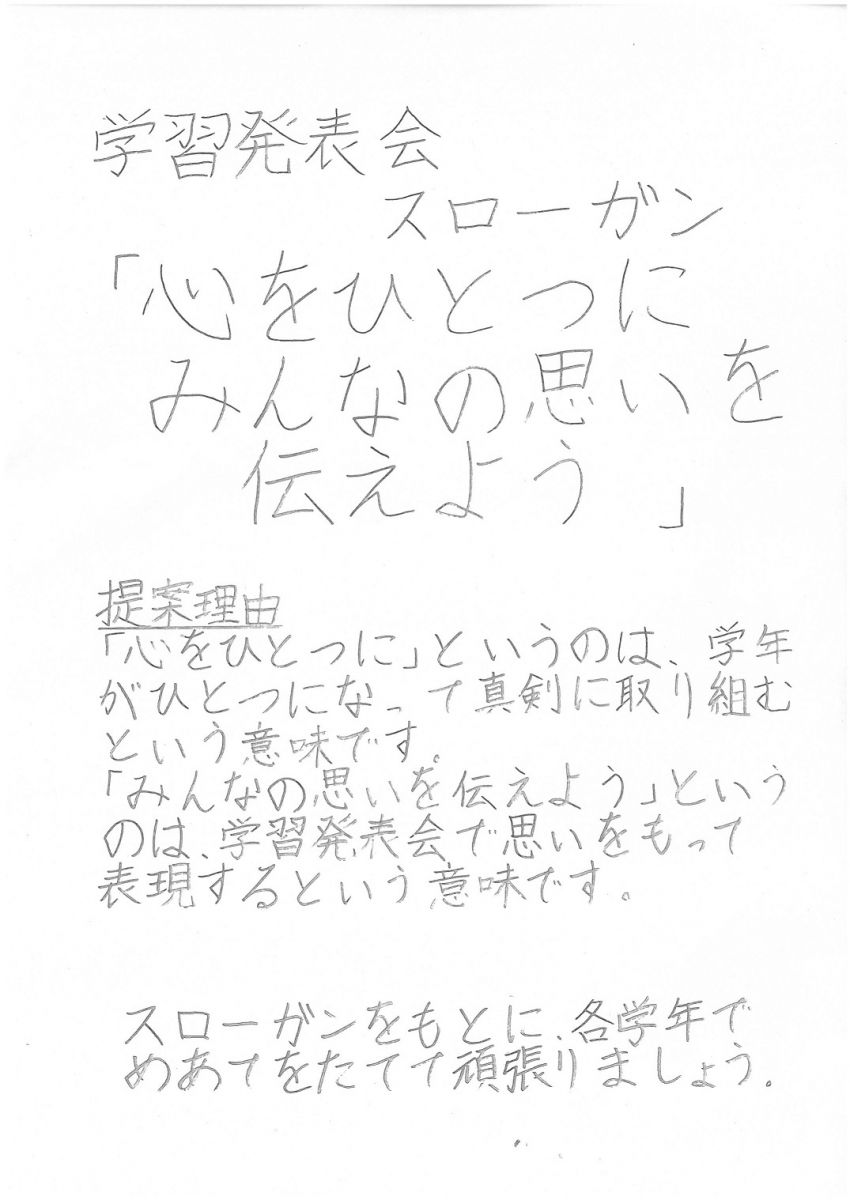 学習発表会
スローガン
「心をひとつに
みんなの思いを
伝えよう」
提案理由
「心をひとつに」というのは、学年
がひとつになって真剣に取り組む
という意味です。
「みんなの思いを伝えよう」という
のは、学習発表会で思いをもって
表現するという意味です。
スローガンをもとに、各学年で
めあてをたてて頑張りましょう。